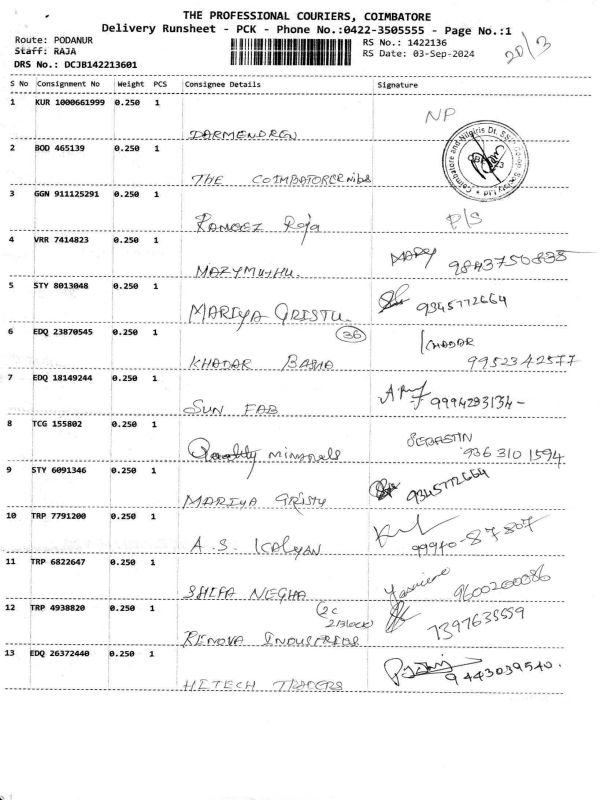 THE PROFESSIONAL COURIERS, COIMBATORE
Delivery Runsheet - PCK - Phone No.:0422-3505555 - Page No.:1
Route: PODANUR RS No.: 1422136 20/3
Staff: RAJA RS Date: 03-Sep-2024
DRS No.: DCJB142213601
S No Consignment No Weight PCS Consignee Details Signature
1 KUR 1000661999 0.250 1 DARMENDREN NP
2 BOD 465139 0.250 1 THE COIMBATORE
Coimbatore and Nilgiris Dt.
3 GGN 911125291 0.250 1 RAMEEZ Roja P/S
4 VRR 7414823 0.250 1 MAZYMUTHU. MARY 9843750833
5 STY 8013048 0.250 1 MARIYA GRISTU. 9345772664
36
6 EDQ 23870545 0.250 1 KHADAR BASHA KHADAR 9952342577
7 EDQ 18149244 0.250 1 SUN FAB 9994293134-
8 TCG 155802 0.250 1 Quality minerals SEBASTIN 936 310 1594
9 STY 6091346 0.250 1 MARIYA GRISTY 9345772664
10 TRP 7791200 0.250 1 A.S. KALYAN 99940-87807
11 TRP 6822647 0.250 1 SHIFA NEGHA 9600260086
12 TRP 4938820 0.250 1 RENOVA INDUSTRIES 7397635559
(2C
2 Block)
13 EDQ 26372440 0.250 1 HITECH TRADERS 9443039540.